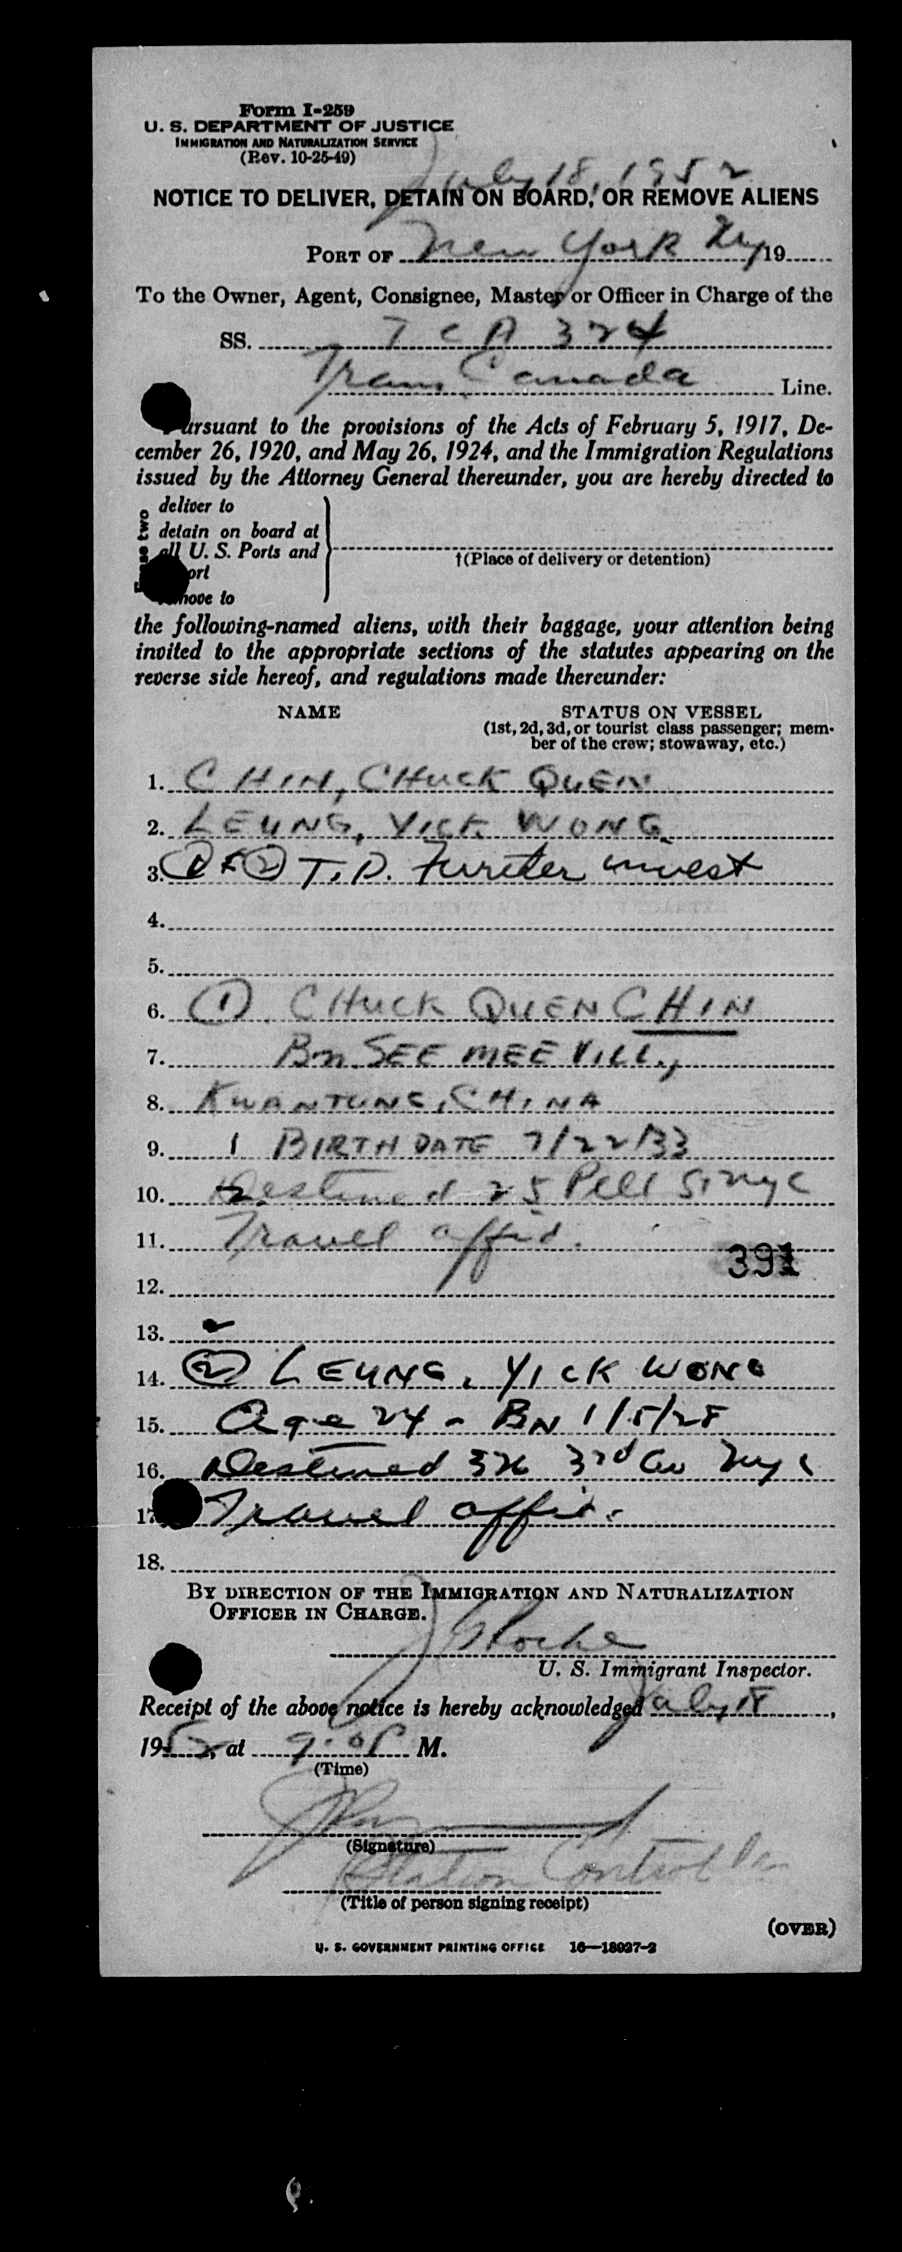 Form I-259
U. S. DEPARTMENT OF JUSTICE
IMMIGRATION AND NATURALIZATION SERVICE
(Rev. 10-25-49)
July 18, 1952
NOTICE TO DELIVER, DETAIN ON BOARD, OR REMOVE ALIENS
PORT OF New York Ny 19
To the Owner, Agent, Consignee, Master or Officer in Charge of the
SS. TCA 324
Trans Canada Line.
ursuant to the provisions of the Acts of February 5, 1917, De-
cember 26, 1920, and May 26, 1924, and the Immigration Regulations
issued by the Attorney General thereunder, you are hereby directed to
deliver to
detain on board at
all U. S. Ports and
ort
move to
two
†(Place of delivery or detention)
the following-named aliens, with their baggage, your attention being
invited to the appropriate sections of the statutes appearing on the
reverse side hereof, and regulations made thereunder:
NAME STATUS ON VESSEL
(1st, 2d, 3d, or tourist class passenger; mem-
ber of the crew; stowaway, etc.)
1. CHIN, CHUCK QUEN
2. LEUNG, YICK WONG
3. (1) & (2) T.D. Further invest
4.
5.
6. (1) CHUCK QUEN CHIN
7. Bn SEE MEE VILL,
8. KWANTUNG, CHINA
9. 1 BIRTH DATE 7/22/33
10. Destined 25 Pell St nyc
11. Travel affid.
391
12.
13.
14. (2) LEUNG, YICK WONG
15. Age 24 - BN 1/5/28
16. Destined 326 3rd Av Nyc
17. Travel affid.
18.
BY DIRECTION OF THE IMMIGRATION AND NATURALIZATION
OFFICER IN CHARGE.
J Roche
U. S. Immigrant Inspector.
Receipt of the above notice is hereby acknowledged July 18,
1952, at 9:05 P M.
(Time)
(Signature)
Station Controller
(Title of person signing receipt)
(OVER)
U. S. GOVERNMENT PRINTING OFFICE 16—18937-2